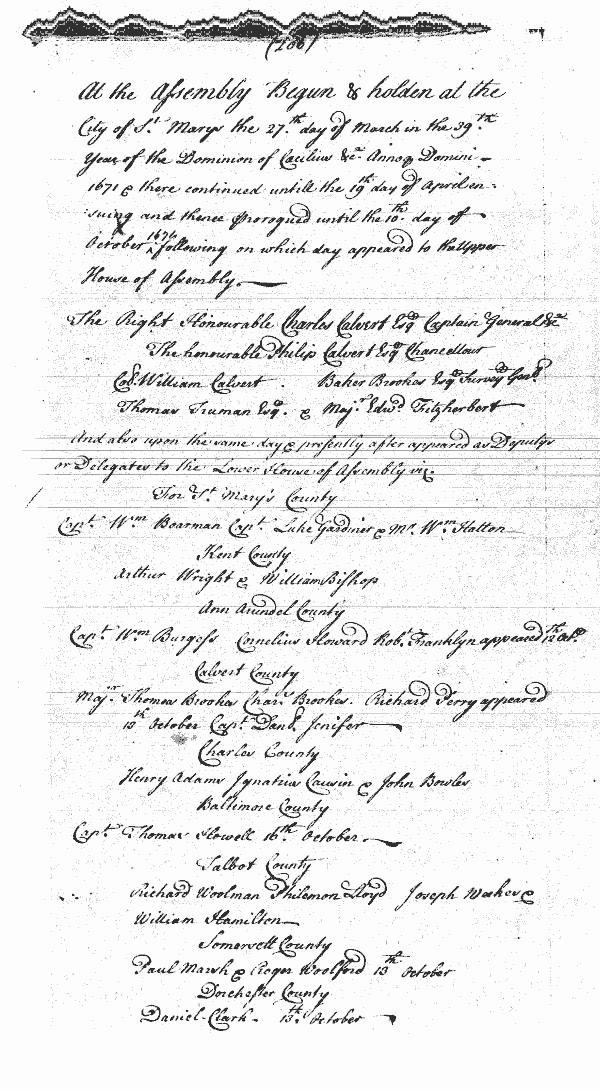 (186)
At the Assembly Begun & holden at the
City of St. Marys the 27.th day of March in the 39.th
Year of the Dominion of Cecilius &ca. Annoq Domini -
1671 & there continued untill the 19th day of April en-
suing and thence prorogued until the 10.th day of
October 1671 following on which day appeared to the Upper
House of Assembly.
The Right Honourable Charles Calvert Esqr Captain General &ca
The honourable Philip Calvert Esqr Chancellour
Col. William Calvert . Baker Brookes Esqr Survey Genl.
Thomas Truman Esqr. & Majr. Edwd. Fitzherbert
And also upon the same day & presently after appeared as Deputys
or Delegates to the Lower House of Assembly viz.
For St. Mary's County
Capt. Wm Boarman Capt. Luke Gardiner & Mr. Wm Hatton
Kent County
Arthur Wright & William Bishop
Ann Arundel County
Capt. Wm Burgess Cornelius Howard Robt. Franklyn appeared 12th Octr.
Calvert County
Majr. Thomas Brookes Chars Brookes. Richard Perry appeared
10th October Capt. Danl. Jenifer
Charles County
Henry Adams Ignatius Causin & John Bowles
Baltimore County
Capt. Thomas Howell 16th October.
Talbot County
Richard Woolman Philemon Lloyd Joseph Weekes &
William Hamilton
Somersett County
Paul Marsh & Roger Woolford 13th October
Dorchester County
Daniel Clark - 13th. October